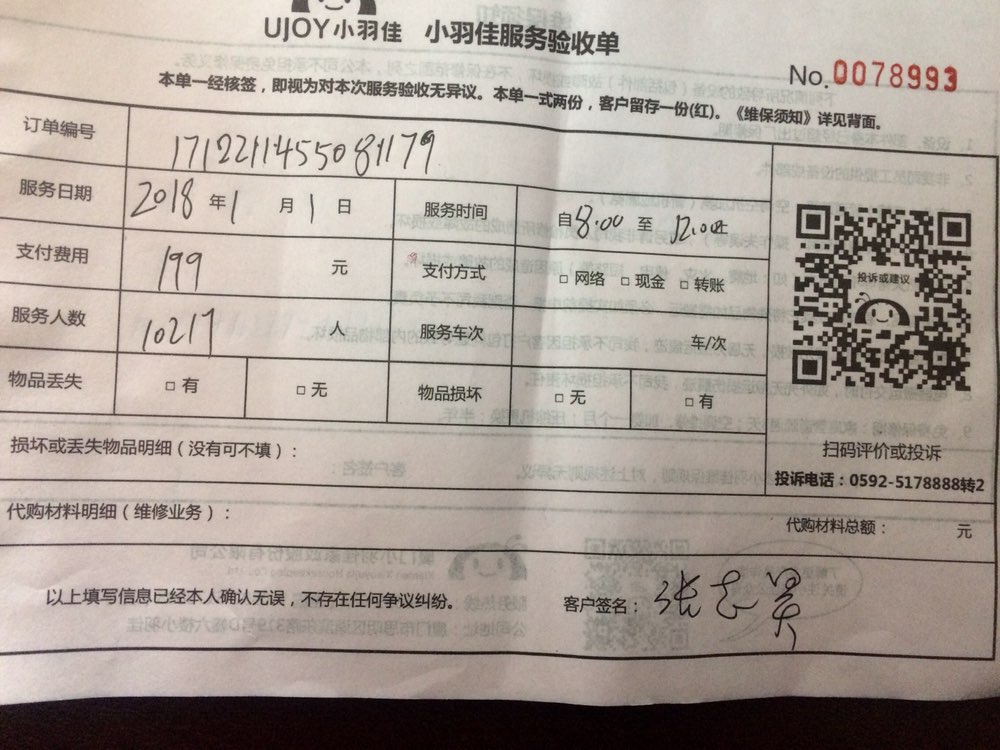 UJOY小羽佳 小羽佳服务验收单
No.0078993
本单一经核签，即视为对本次服务验收无异议。本单一式两份，客户留存一份(红)。《维保须知》详见背面。
订单编号 1712211455081179
服务日期 2018年1月1日 服务时间 自8:00至12:00止
支付费用 199 元 支付方式 □网络 □现金 □转账
服务人数 10217 人 服务车次 车/次
物品丢失 □有 □无 物品损坏 □无 □有
投诉或建议
扫码评价或投诉
投诉电话：0592-5178888转2
损坏或丢失物品明细（没有可不填）：
代购材料明细（维修业务）： 代购材料总额： 元
以上填写信息已经本人确认无误，不存在任何争议纠纷。 客户签名：张志